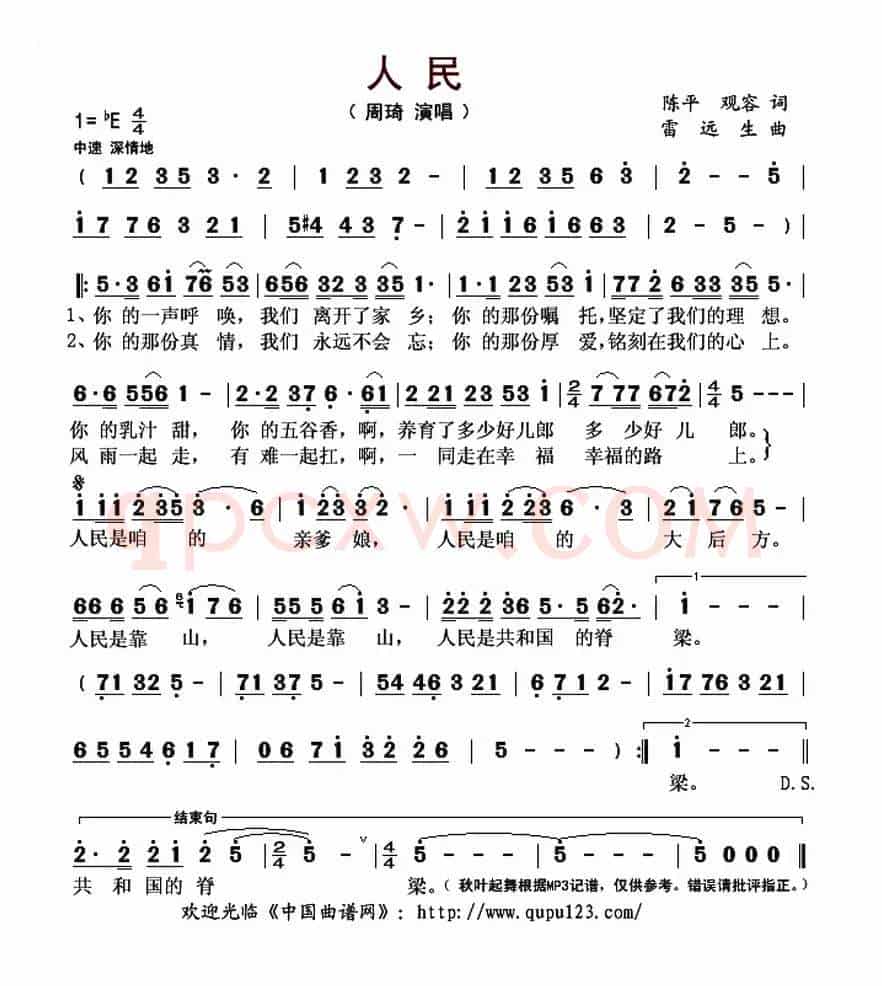 人民
（周琦 演唱）
陈平 观容 词
雷远生 曲
1=♭E 4/4
中速 深情地
( 1 2 3 5 3 · 2 | 1 2 3 2 - | 1 2 3 5 6 3 | 2 - - 5 |
i 7 7 6 3 2 1 | 5 #4 4 3 7 - | 2 i i 6 i 6 6 3 | 2 - 5 - ) |
‖: 5·3 6i 76 53 | 656 32 3 35 1· | 1·1 23 53 i | 77 2 6 33 35 5· |
1、你 的一声呼 唤，我们 离开了家 乡；你 的那份嘱 托，坚定了我们的理 想。
2、你 的那份真 情，我们 永远不会 忘；你 的那份厚 爱，铭刻在我们的心 上。
6·6 556 i - | 2·2 37 6 · 61 | 2 21 23 53 i | 2/4 7 77 672 | 4/4 5 - - - |
你 的乳汁 甜， 你 的五谷香，啊，养育了多少好儿郎 多 少好 儿 郎。
风 雨一起 走， 有 难一起扛，啊，一 同走在幸 福 幸福的路 上。
i ii 235 3 · 6 | i 23 3 2 · | i ii 223 6 · 3 | 2 i 7 6 5 - |
人民是咱 的 亲爹 娘， 人民是咱 的 大 后 方。
66 6 5 6 i 7 6 | 55 5 6 i 3 - | 22 2 36 5· 5 62· | i - - - |
人民是靠 山， 人民是靠 山， 人民是共和国 的脊 梁。
1
( 71 32 5 - | 71 37 5 - | 54 46 3 2 1 | 6 7 1 2 - | i7 76 3 21 |
6 5 5 4 6 1 7 | 0 6 7 i 3 2 2 6 | 5 - - - ) :‖ i - - - ‖
2
梁。 D.S.
结束句
2· 2 2 i 2 5 | 2/4 5 - ∨ | 4/4 5 - - - | 5 - - - | 5 0 0 0 ‖
共 和 国的 脊 梁。（秋叶起舞根据MP3记谱，仅供参考。错误请批评指正。）
欢迎光临《中国曲谱网》：http://www.qupu123.com/
qpcxw.COM